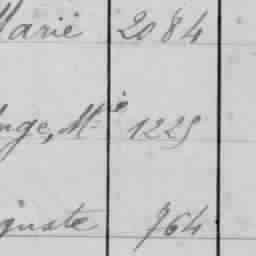 Marie 2084
nge, M.ie 1225
guste 764